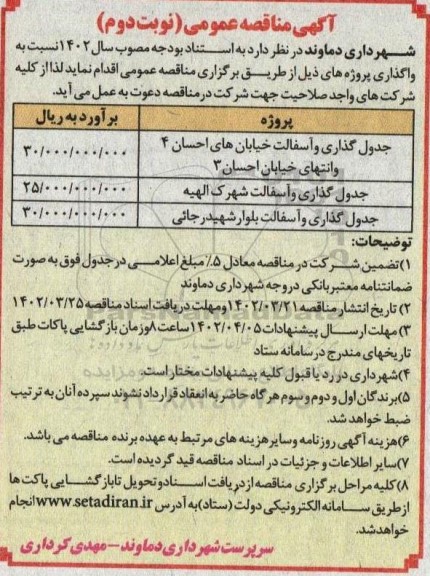 آگهی مناقصه عمومی (نوبت دوم)
شهرداری دماوند در نظر دارد به استناد بودجه مصوب سال ۱۴۰۲ نسبت به
واگذاری پروژه های ذیل از طریق برگزاری مناقصه عمومی اقدام نماید لذا از کلیه
شرکت های واجد صلاحیت جهت شرکت در مناقصه دعوت به عمل می آید.
پروژه
برآورد به ریال
جدول گذاری و آسفالت خیابان های احسان ۴
وانتهای خیابان احسان ۳
۳۰/۰۰۰/۰۰۰/۰۰۰
جدول گذاری و آسفالت شهرک الهیه
۲۵/۰۰۰/۰۰۰/۰۰۰
جدول گذاری و آسفالت بلوار شهیدرجائی
۳۰/۰۰۰/۰۰۰/۰۰۰
توضیحات:
۱) تضمین شرکت در مناقصه معادل ۵٪ مبلغ اعلامی در جدول فوق به صورت
ضمانتنامه معتبر بانکی در وجه شهرداری دماوند
۲) تاریخ انتشار مناقصه ۱۴۰۲/۰۳/۲۱ ومهلت دریافت اسناد مناقصه ۱۴۰۲/۰۳/۲۵
۳) مهلت ارسال پیشنهادات ۱۴۰۲/۰۴/۰۵ ساعت ۸ وزمان بازگشایی پاکات طبق
تاریخهای مندرج در سامانه ستاد
۴) شهرداری در رد یا قبول کلیه پیشنهادات مختار است.
۵) برندگان اول و دوم و سوم هر گاه حاضر به انعقاد قرارداد نشوند سپرده آنان به ترتیب
ضبط خواهد شد.
۶) هزینه آگهی روزنامه وسایر هزینه های مرتبط به عهده برنده مناقصه می باشد.
۷) سایر اطلاعات و جزئیات در اسناد مناقصه قید گردیده است.
۸) کلیه مراحل برگزاری مناقصه از دریافت اسناد و تحویل تا بازگشایی پاکت ها
از طریق سامانه الکترونیکی دولت (ستاد) به آدرس www.setadiran.ir انجام
خواهد شد.
سرپرست شهرداری دماوند - مهدی کرداری